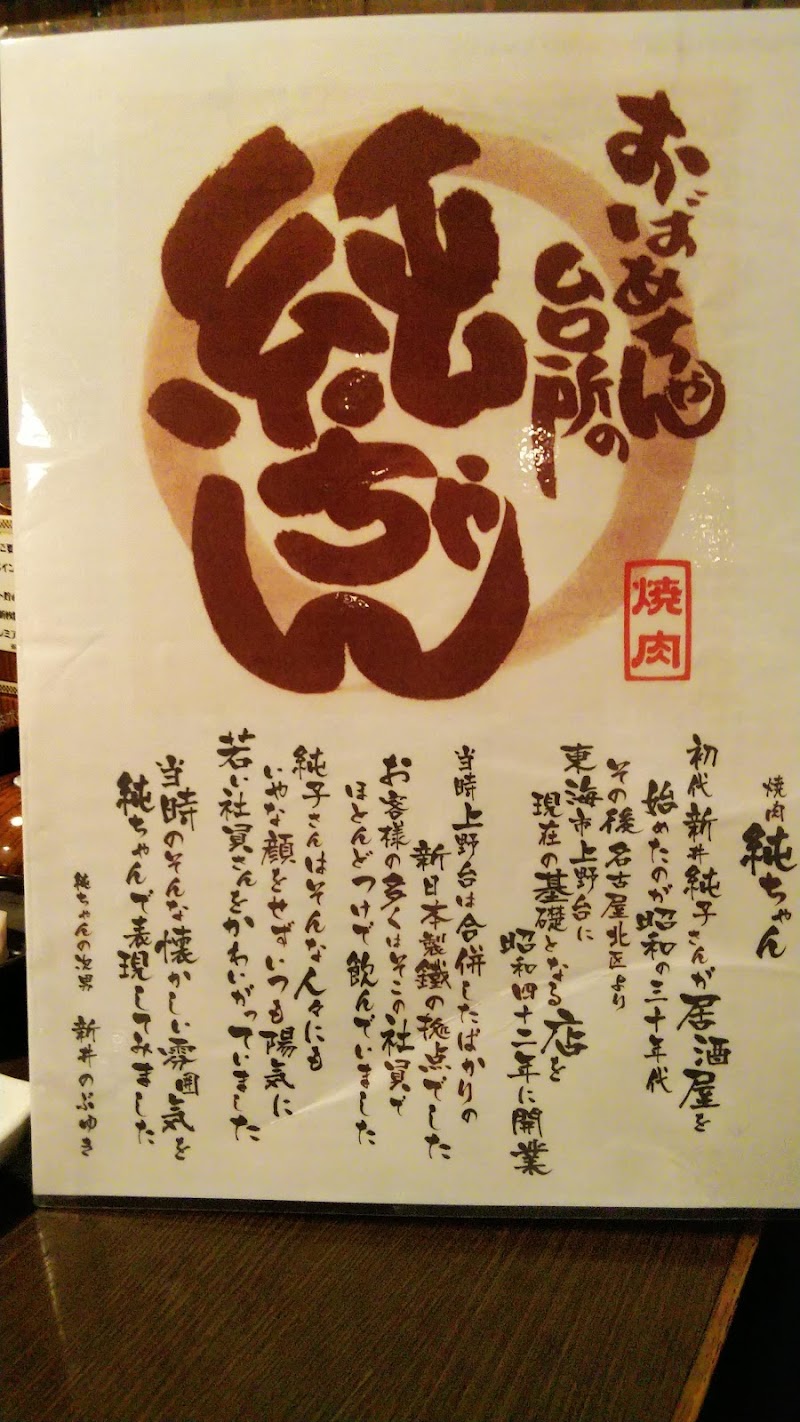 おばあちゃん
台所の
純ちゃん
焼肉
焼肉 純ちゃん
初代 新井純子さんが居酒屋を
始めたのが昭和の三十年代
その後名古屋北区より
東海市上野台に
現在の基礎となる店を
昭和四十二年に開業
当時上野台は合併したばかりの
新日本製鐵の拠点でした
お客様の多くはそこの社員で
ほとんどつけで飲んでいました
純子さんはそんな人々にも
いやな顔をせずいつも陽気に
若い社員さんをかわいがっていました
当時のそんな懐かしい雰囲気を
純ちゃんで表現してみました
純ちゃんの次男 新井のぶゆき